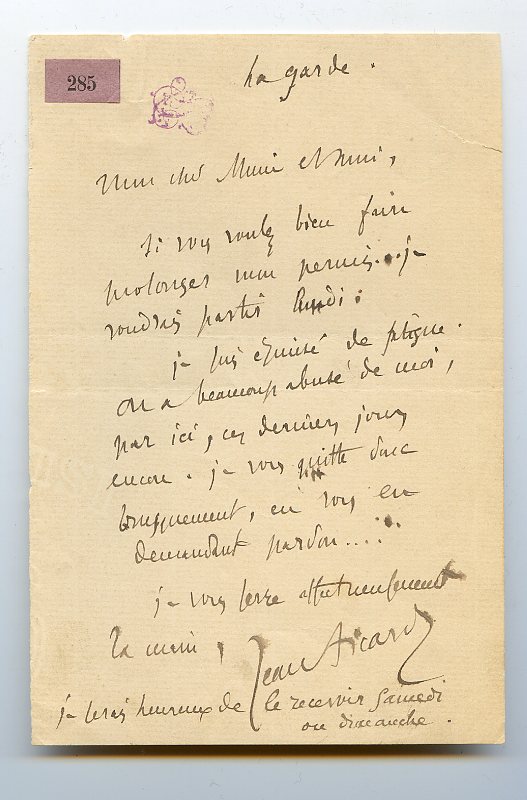 285
La Garde.
Mon cher Maire et ami,
Si vous voulez bien faire
prolonger mon permis... je
voudrais partir lundi :
je suis éreinté de fatigue.
on a beaucoup abusé de moi,
par ici, ces derniers jours
encore. je vous quitte donc
brusquement, en vous en
demandant pardon....
je vous serre affectueusement
la main,
Jean Aicard
je serais heureux de le recevoir samedi
ou dimanche.